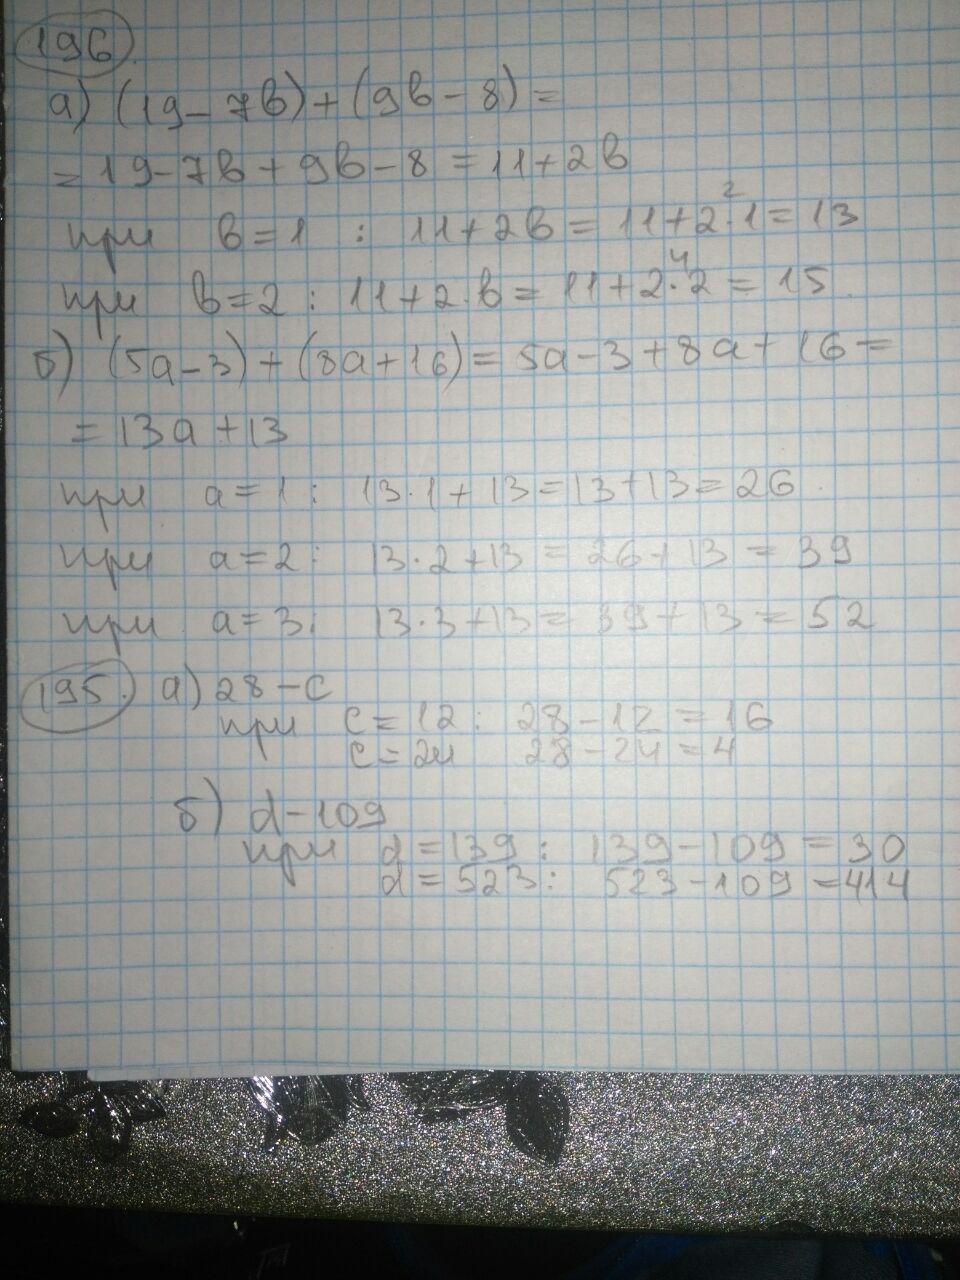 196.
а) (19-7в)+(9в-8)=
=19-7в+9в-8=11+2в
2
при в=1 : 11+2в=11+2·1=13
4
при в=2: 11+2·в=11+2·2=15.
б) (5а-3)+(8а+16)=5а-3+8а+16=
=13а+13
при а=1: 13·1+13=13+13=26.
при а=2: 13·2+13=26+13=39
при а=3: 13·3+13=39+13=52
195. а) 28-с
при с=12: 28-12=16
с=24 28-24=4
б) d-109
при d=139: 139-109=30
d=523: 523-109=414